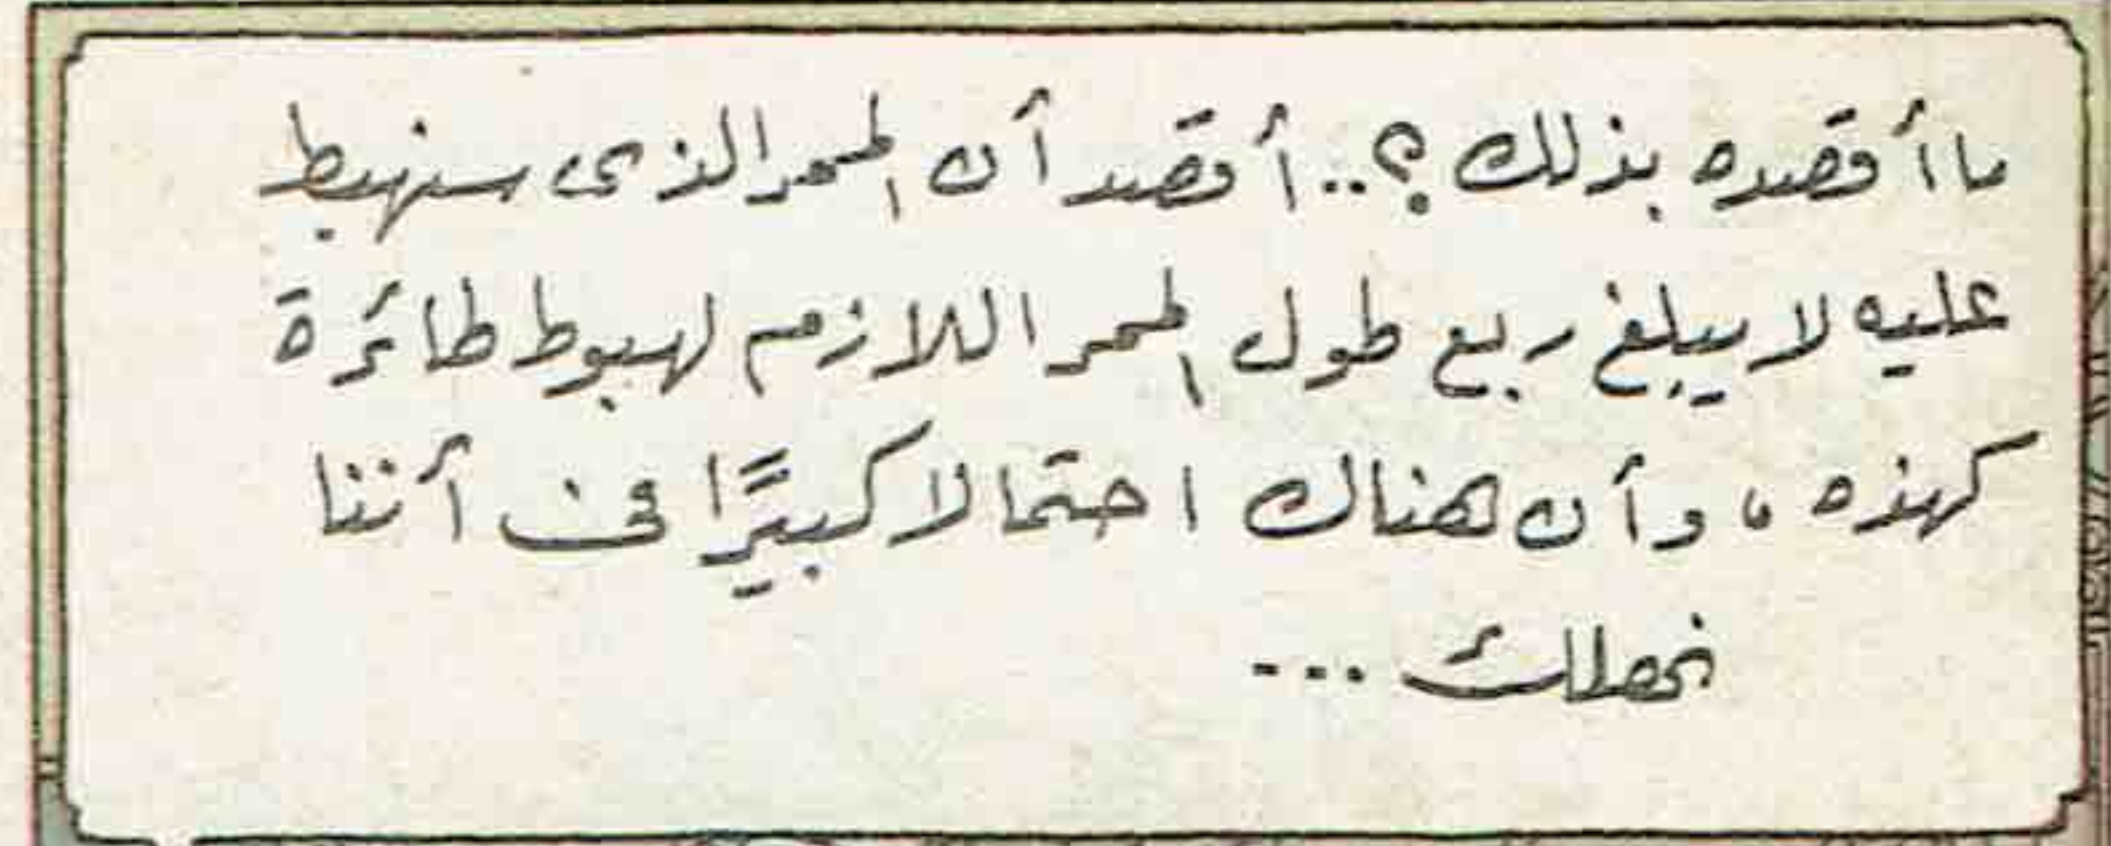 ما أقصده بذلك ؟.. أقصد أن الممر الذى سنهبط
عليه لا يبلغ ربع طول الممر اللازم لهبوط طائرة
كهذه ، وأن هناك احتمالا كبيرًا فى أننا
نهلك ...